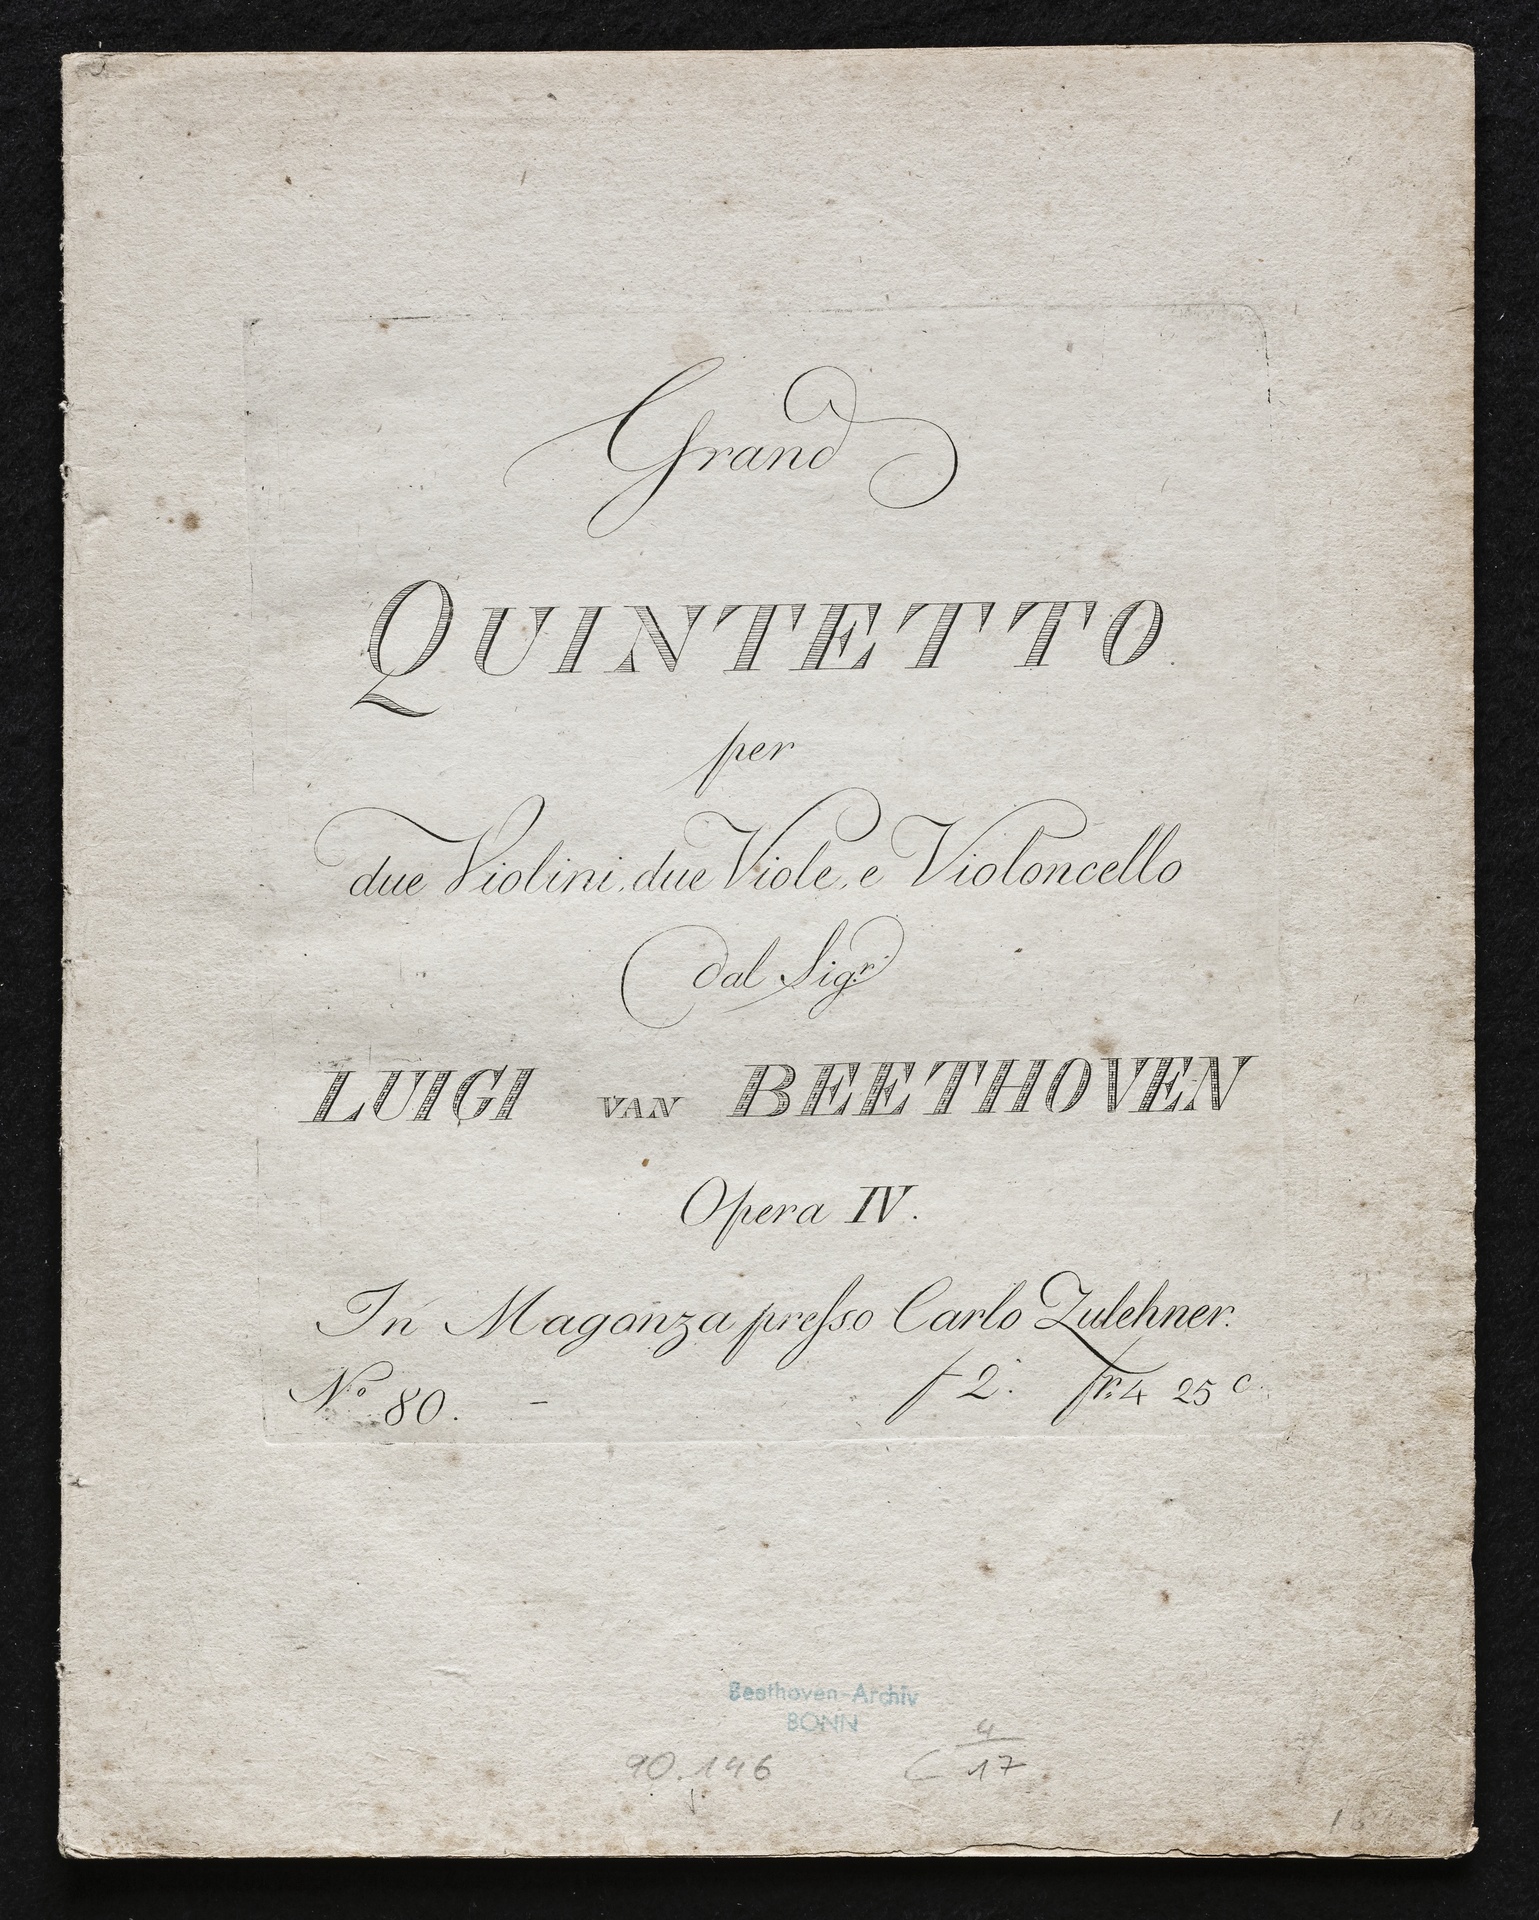 Grand
QUINTETTO
per
due Violini, due Viole, e Violoncello
dal Sigr.
LUIGI VAN BEETHOVEN
Opera IV.
In Magonza presso Carlo Zulehner.
No. 80. - f 2. fr. 4 25 c.
Beethoven-Archiv
BONN
90.146 C 4/17